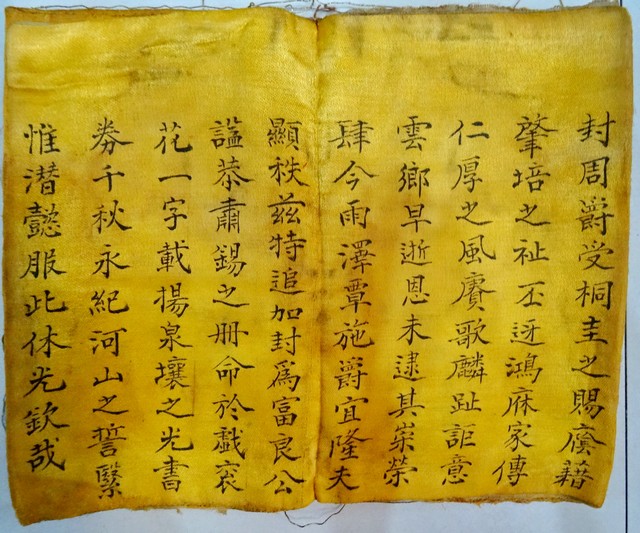 封周爵受桐圭之賜蔭藉
肇培之祉丕迓鴻庥家傳
仁厚之風賡歌麟趾詎意
雲鄉早逝恩未逮其崇榮
肆今雨澤覃施爵宜隆夫
顯秩茲特追加封爲富良公
謚恭肅錫之册命於戲袞
花一字載揚泉壤之光書
券千秋永紀河山之誓緊
惟潛懿服此休光欽哉